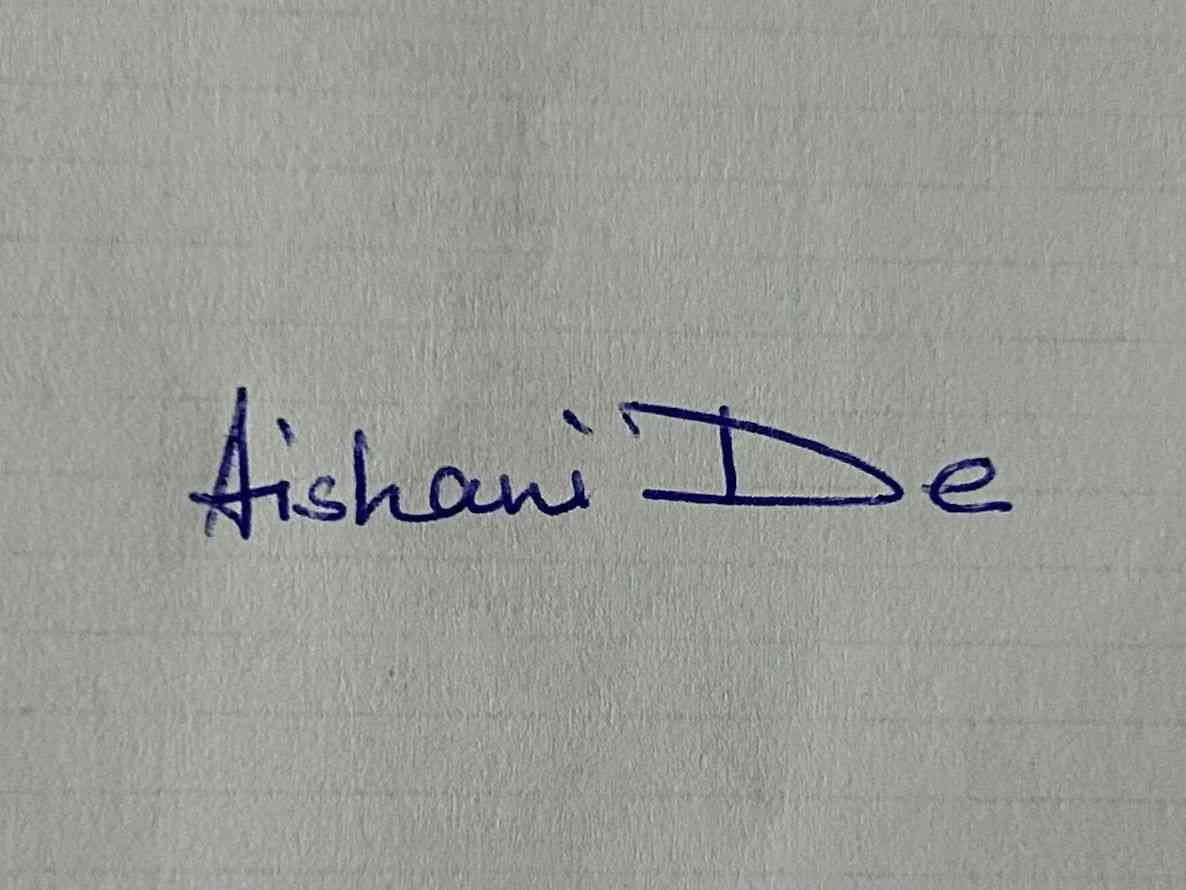 Aishani De